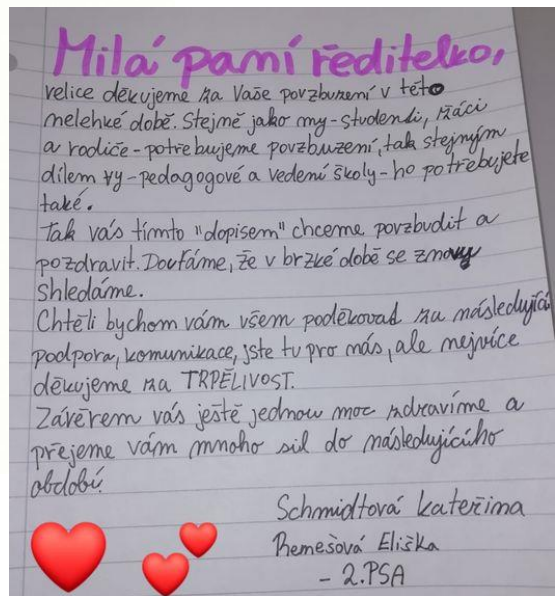 Milá paní ředitelko,
velice děkujeme za Vaše povzbuzení v této
nelehké době. Stejně jako my-studenti, žáci
a rodiče-potřebujeme povzbuzení, tak stejným
dílem vy-pedagogové a vedení školy-ho potřebujete
také.
Tak vás tímto "dopisem" chceme povzbudit a
pozdravit. Doufáme, že v brzké době se znovu
shledáme.
Chtěli bychom vám všem poděkovat za následující
podpora, komunikace, jste tu pro nás, ale nejvíce
děkujeme za TRPĚLIVOST.
Závěrem vás ještě jednou moc zdravíme a
přejeme vám mnoho sil do následujícího
období.
Schmidtová Kateřina
Remešová Eliška
- 2.PSA